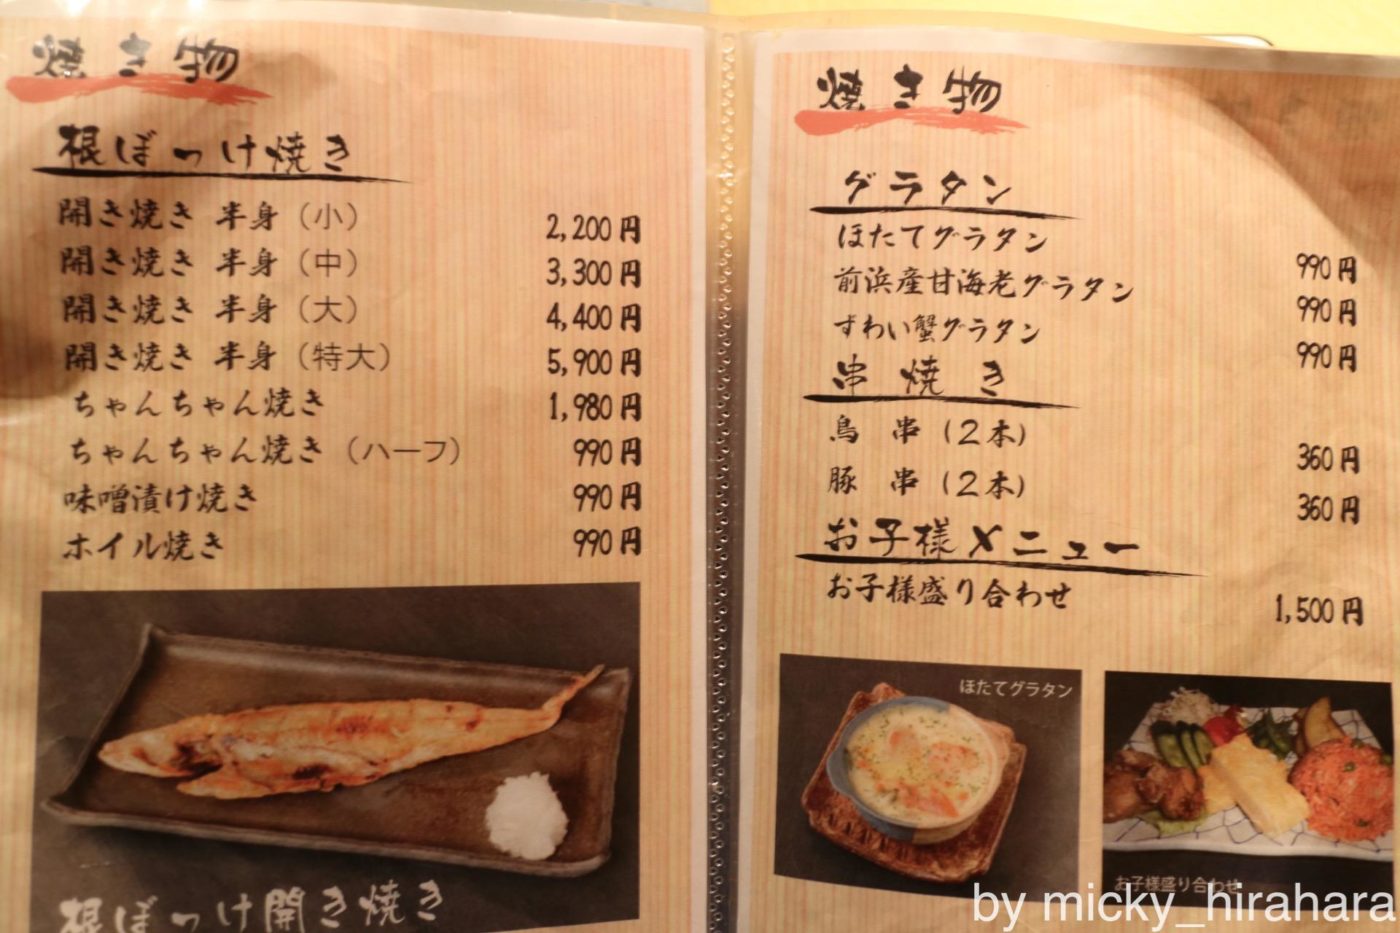 焼き物
根ぼっけ焼き
開き焼き 半身（小） 2,200円
開き焼き 半身（中） 3,300円
開き焼き 半身（大） 4,400円
開き焼き 半身（特大） 5,900円
ちゃんちゃん焼き 1,980円
ちゃんちゃん焼き（ハーフ） 990円
味噌漬け焼き 990円
ホイル焼き 990円
根ぼっけ開き焼き
焼き物
グラタン
ほたてグラタン 990円
前浜産甘海老グラタン 990円
ずわい蟹グラタン 990円
串焼き
鳥 串（2本） 360円
豚 串（2本） 360円
お子様メニュー
お子様盛り合わせ 1,500円
ほたてグラタン
お子様盛り合わせ
by micky_hirahara